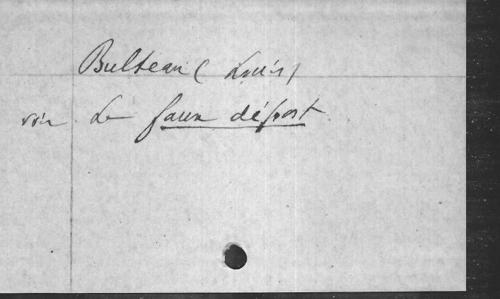 Bulteau (Louis)
voir Le faux dépost